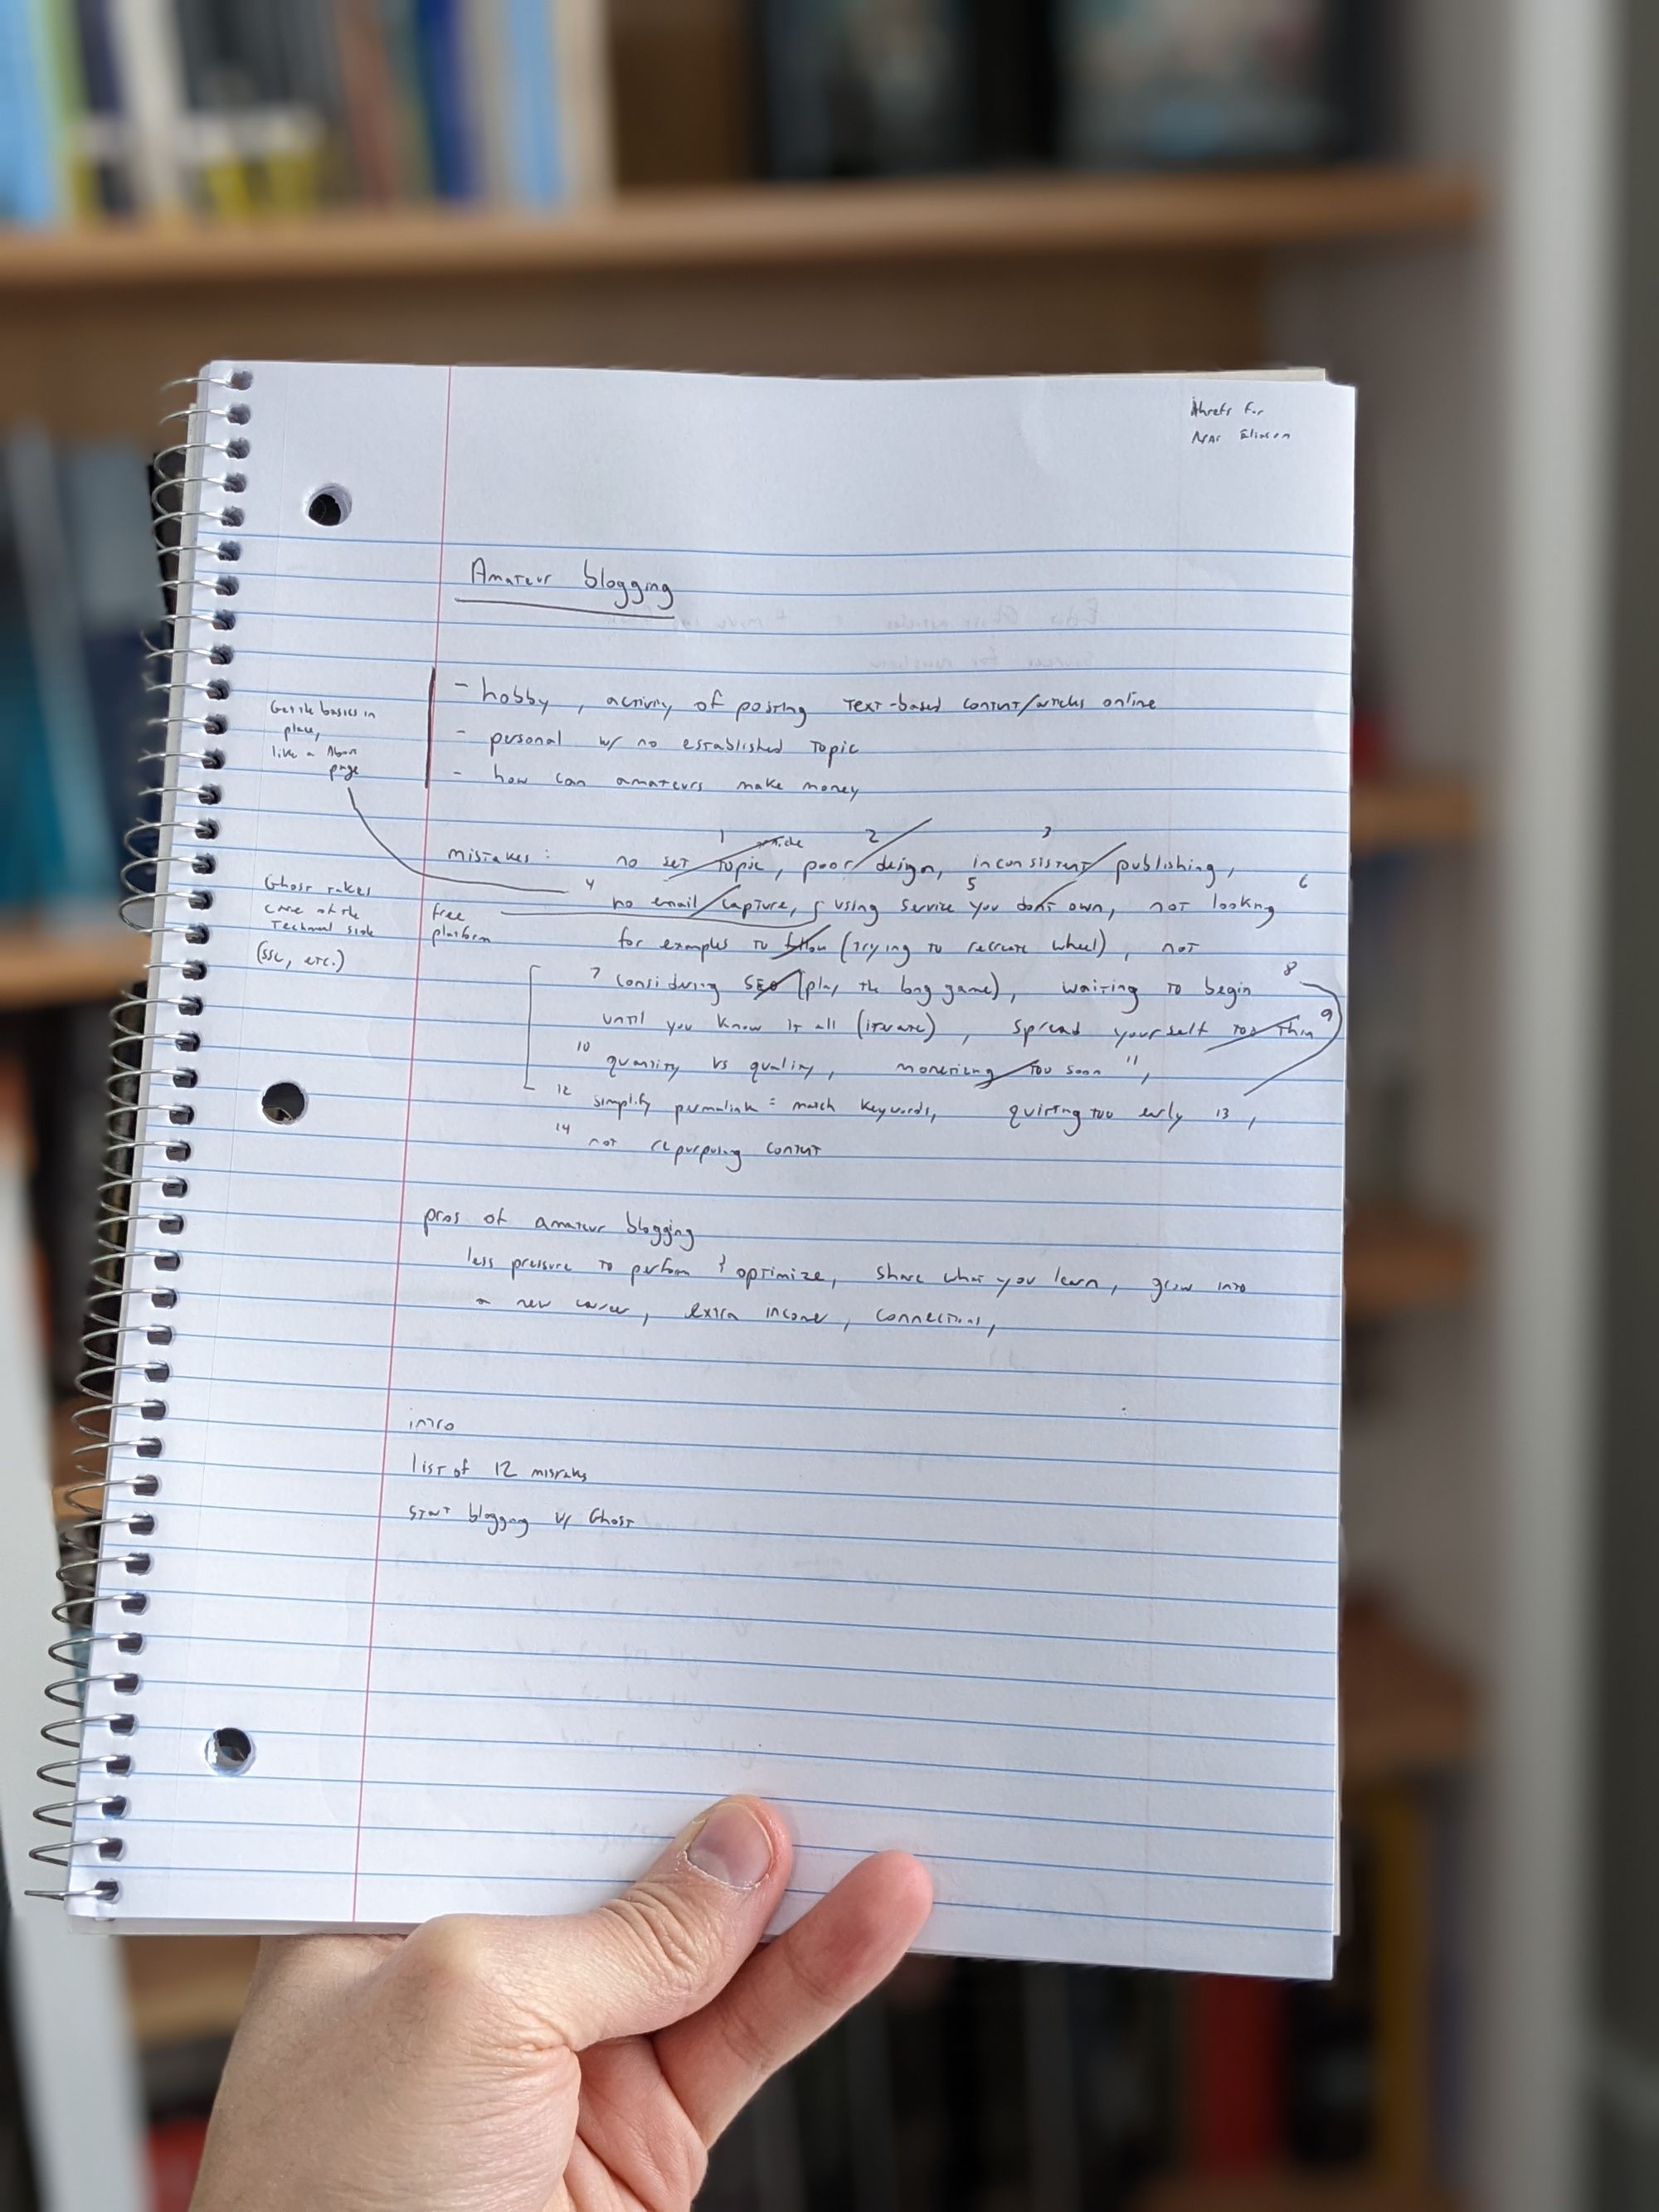 Ahrefs for
Amateur blogging
- hobby, activity of posting text-based content/articles online
- personal w/ no established topic
- how can amateurs make money
Get the basics in
place,
like a About
page
mistakes: no set topic, poor design, inconsistent publishing,
1 niche 2 3
4 no email capture, using service you don't own, not looking
5 6
free
platform
for examples to follow (trying to recreate wheel), not
7 considering SEO (play the long game), waiting to begin 8
until you know it all (iterate), spread yourself too thin 9
10 quantity vs quality, monetizing too soon 11,
12 simplify permalink = match keywords, quitting too early 13,
14 not repurposing content
Ghost takes
care of the
technical side
(SSL, etc.)
pros of amateur blogging
less pressure to perform & optimize, share what you learn, grow into
a new career, extra income, connections,
intro
list of 12 mistakes
start blogging w/ Ghost